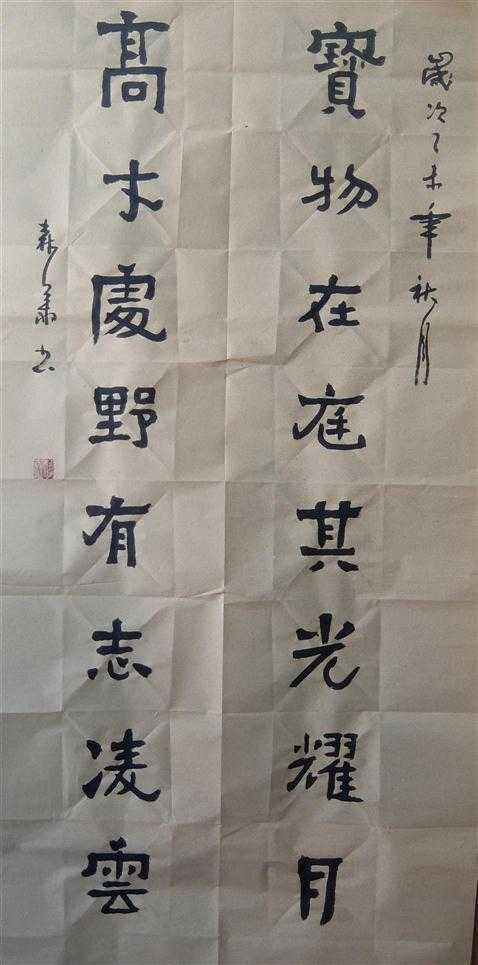 歲次乙未年秋月
寶物在庭其光耀月
高才處野有志凌雲
森 書